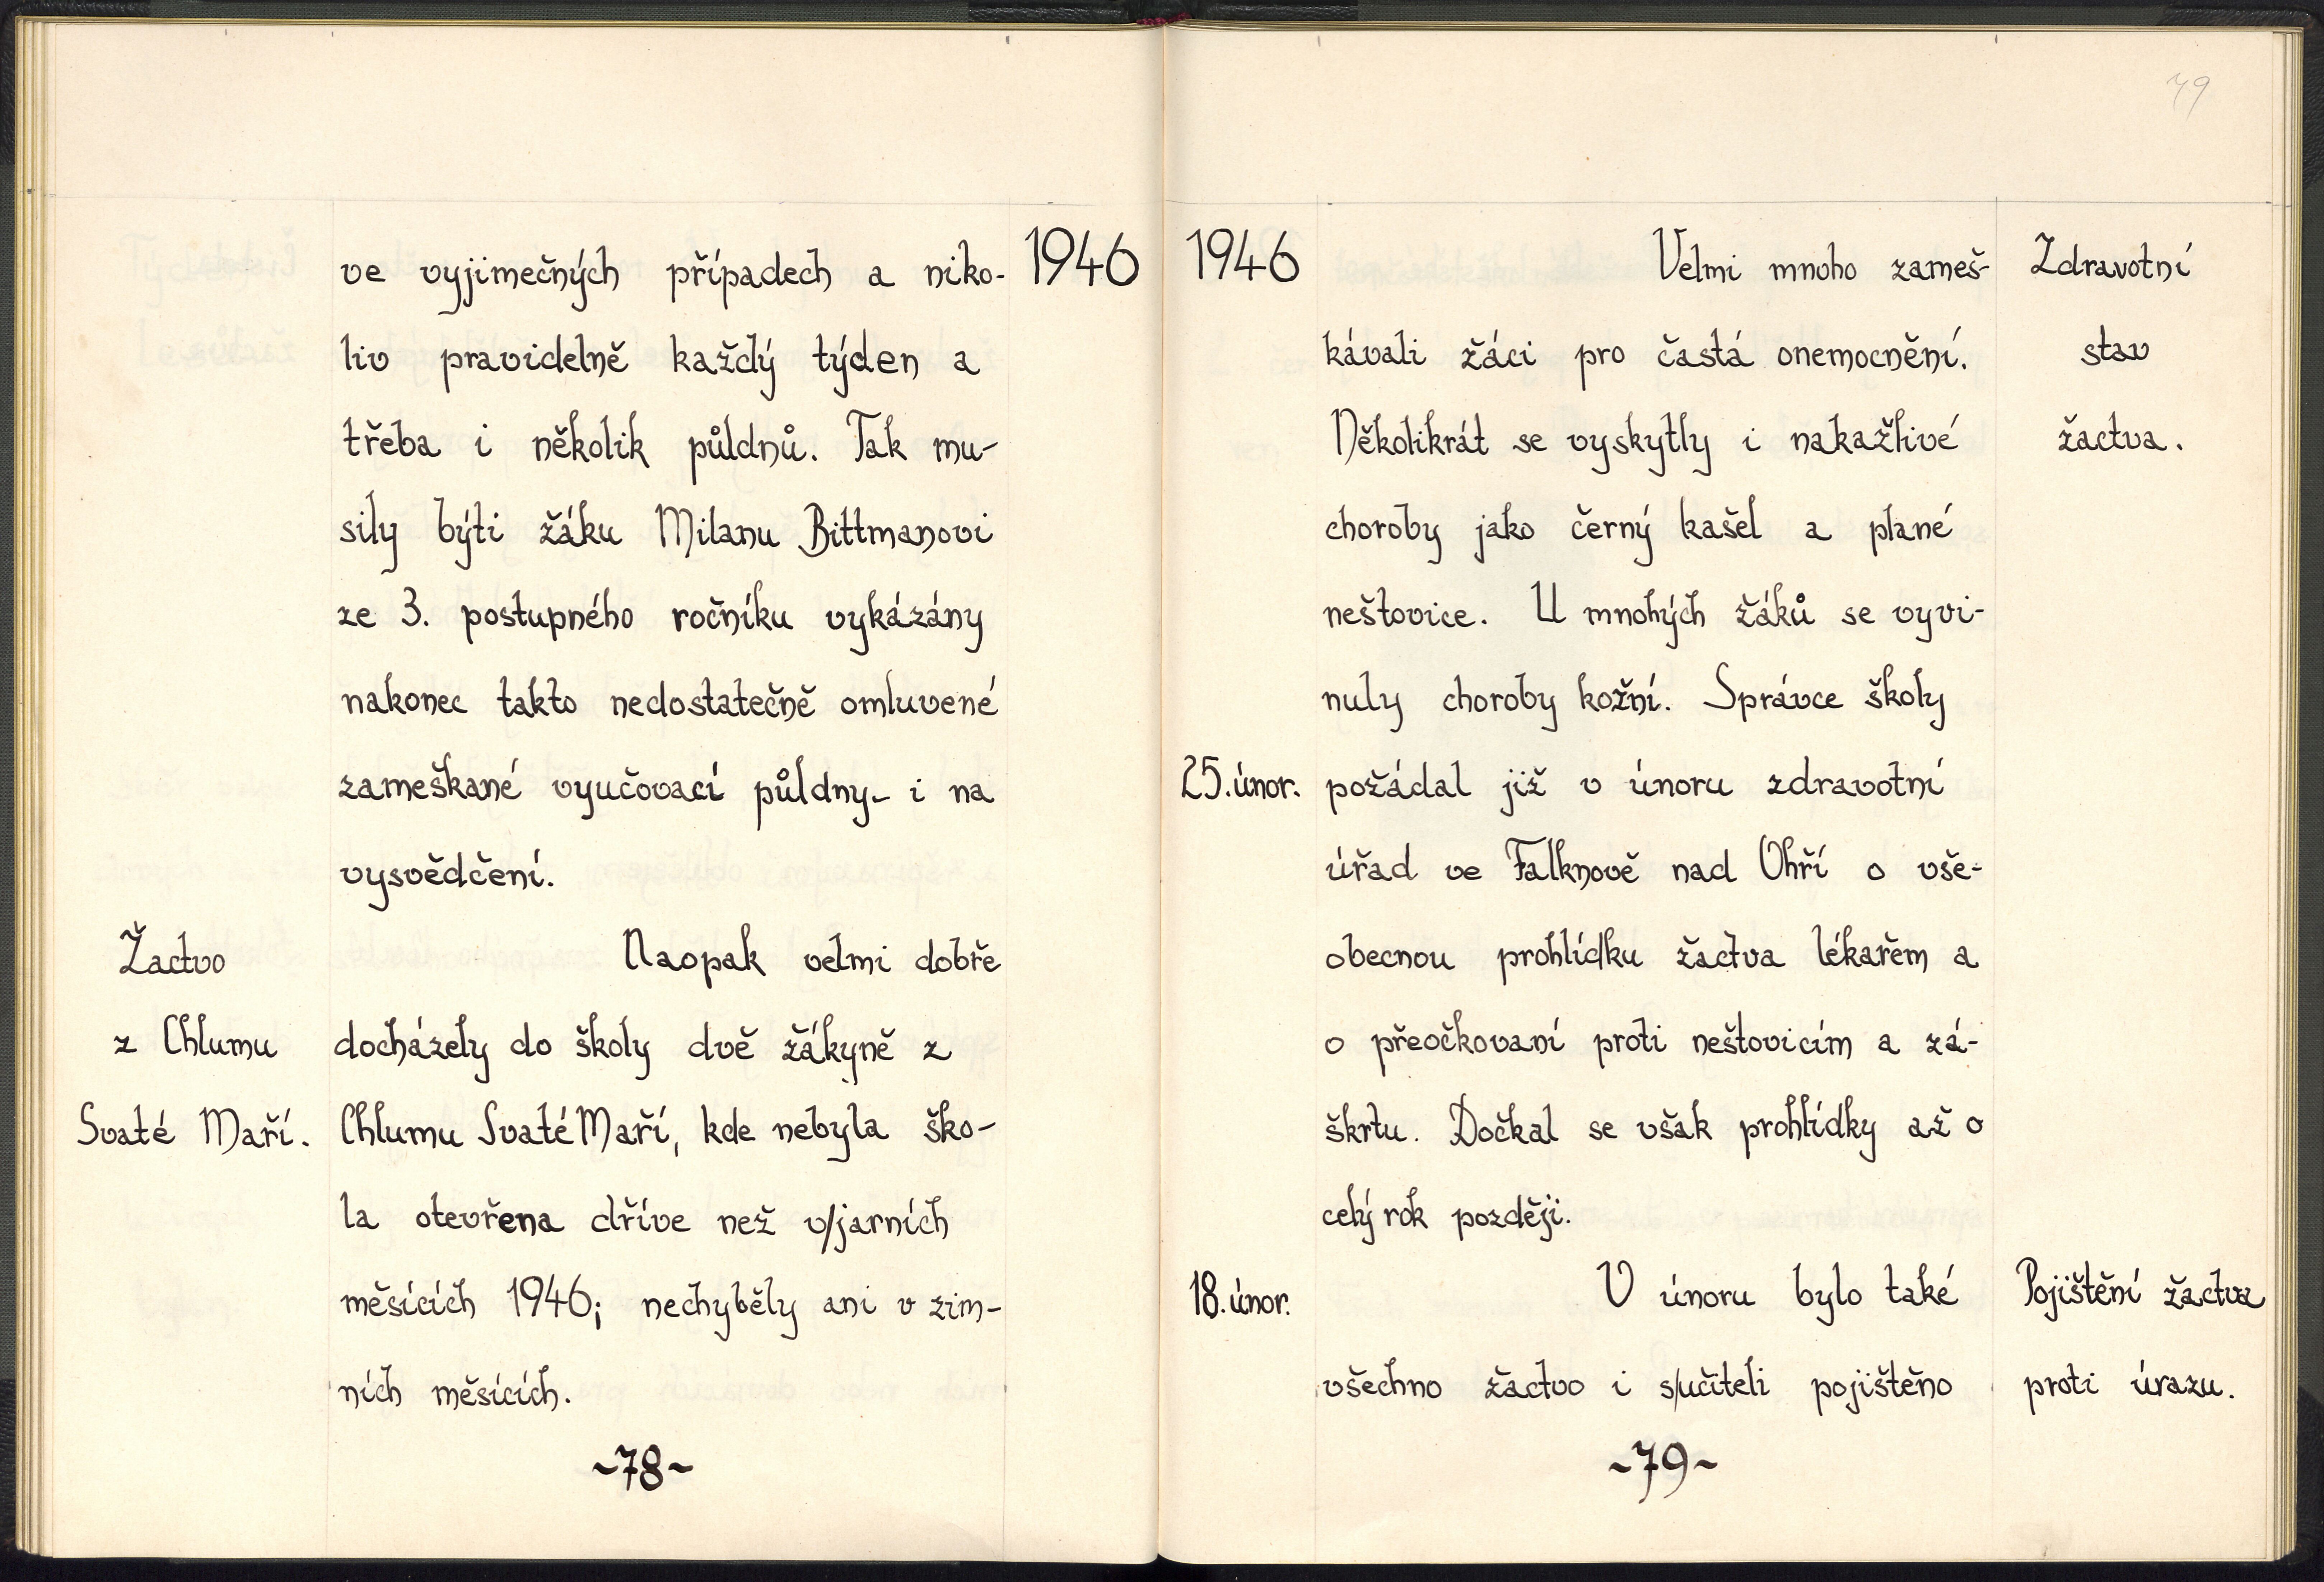 1946
ve vyjimečných případech a niko-
liv pravidelně každý týden a
třeba i několik půldnů. Tak mu-
sily býti žáku Milanu Bittmanovi
ze 3. postupného ročníku vykázány
nakonec takto nedostatečně omluvené
zameškané vyučovací půldny - i na
vysvědčení.
Žactvo
z Chlumu
Svaté Maří.
Naopak velmi dobře
docházely do školy dvě žákyně z
Chlumu Svaté Maří, kde nebyla ško-
la otevřena dříve než v/jarních
měsících 1946; nechyběly ani v zim-
ních měsících.
~78~
79
1946
Zdravotní
stav
žactva.
Velmi mnoho zameš-
kávali žáci pro častá onemocnění.
Několikrát se vyskytly i nakažlivé
choroby jako černý kašel a plané
neštovice. U mnohých žáků se vyvi-
nuly choroby kožní. Správce školy
25. únor.
požádal již v únoru zdravotní
úřad ve Falknově nad Ohří o vše-
obecnou prohlídku žactva lékařem a
o přeočkovaní proti neštovicím a zá-
škrtu. Dočkal se však prohlídky až o
celý rok později.
18. únor.
Pojištění žactva
proti úrazu.
V únoru bylo také
všechno žactvo i s/učiteli pojištěno
~79~